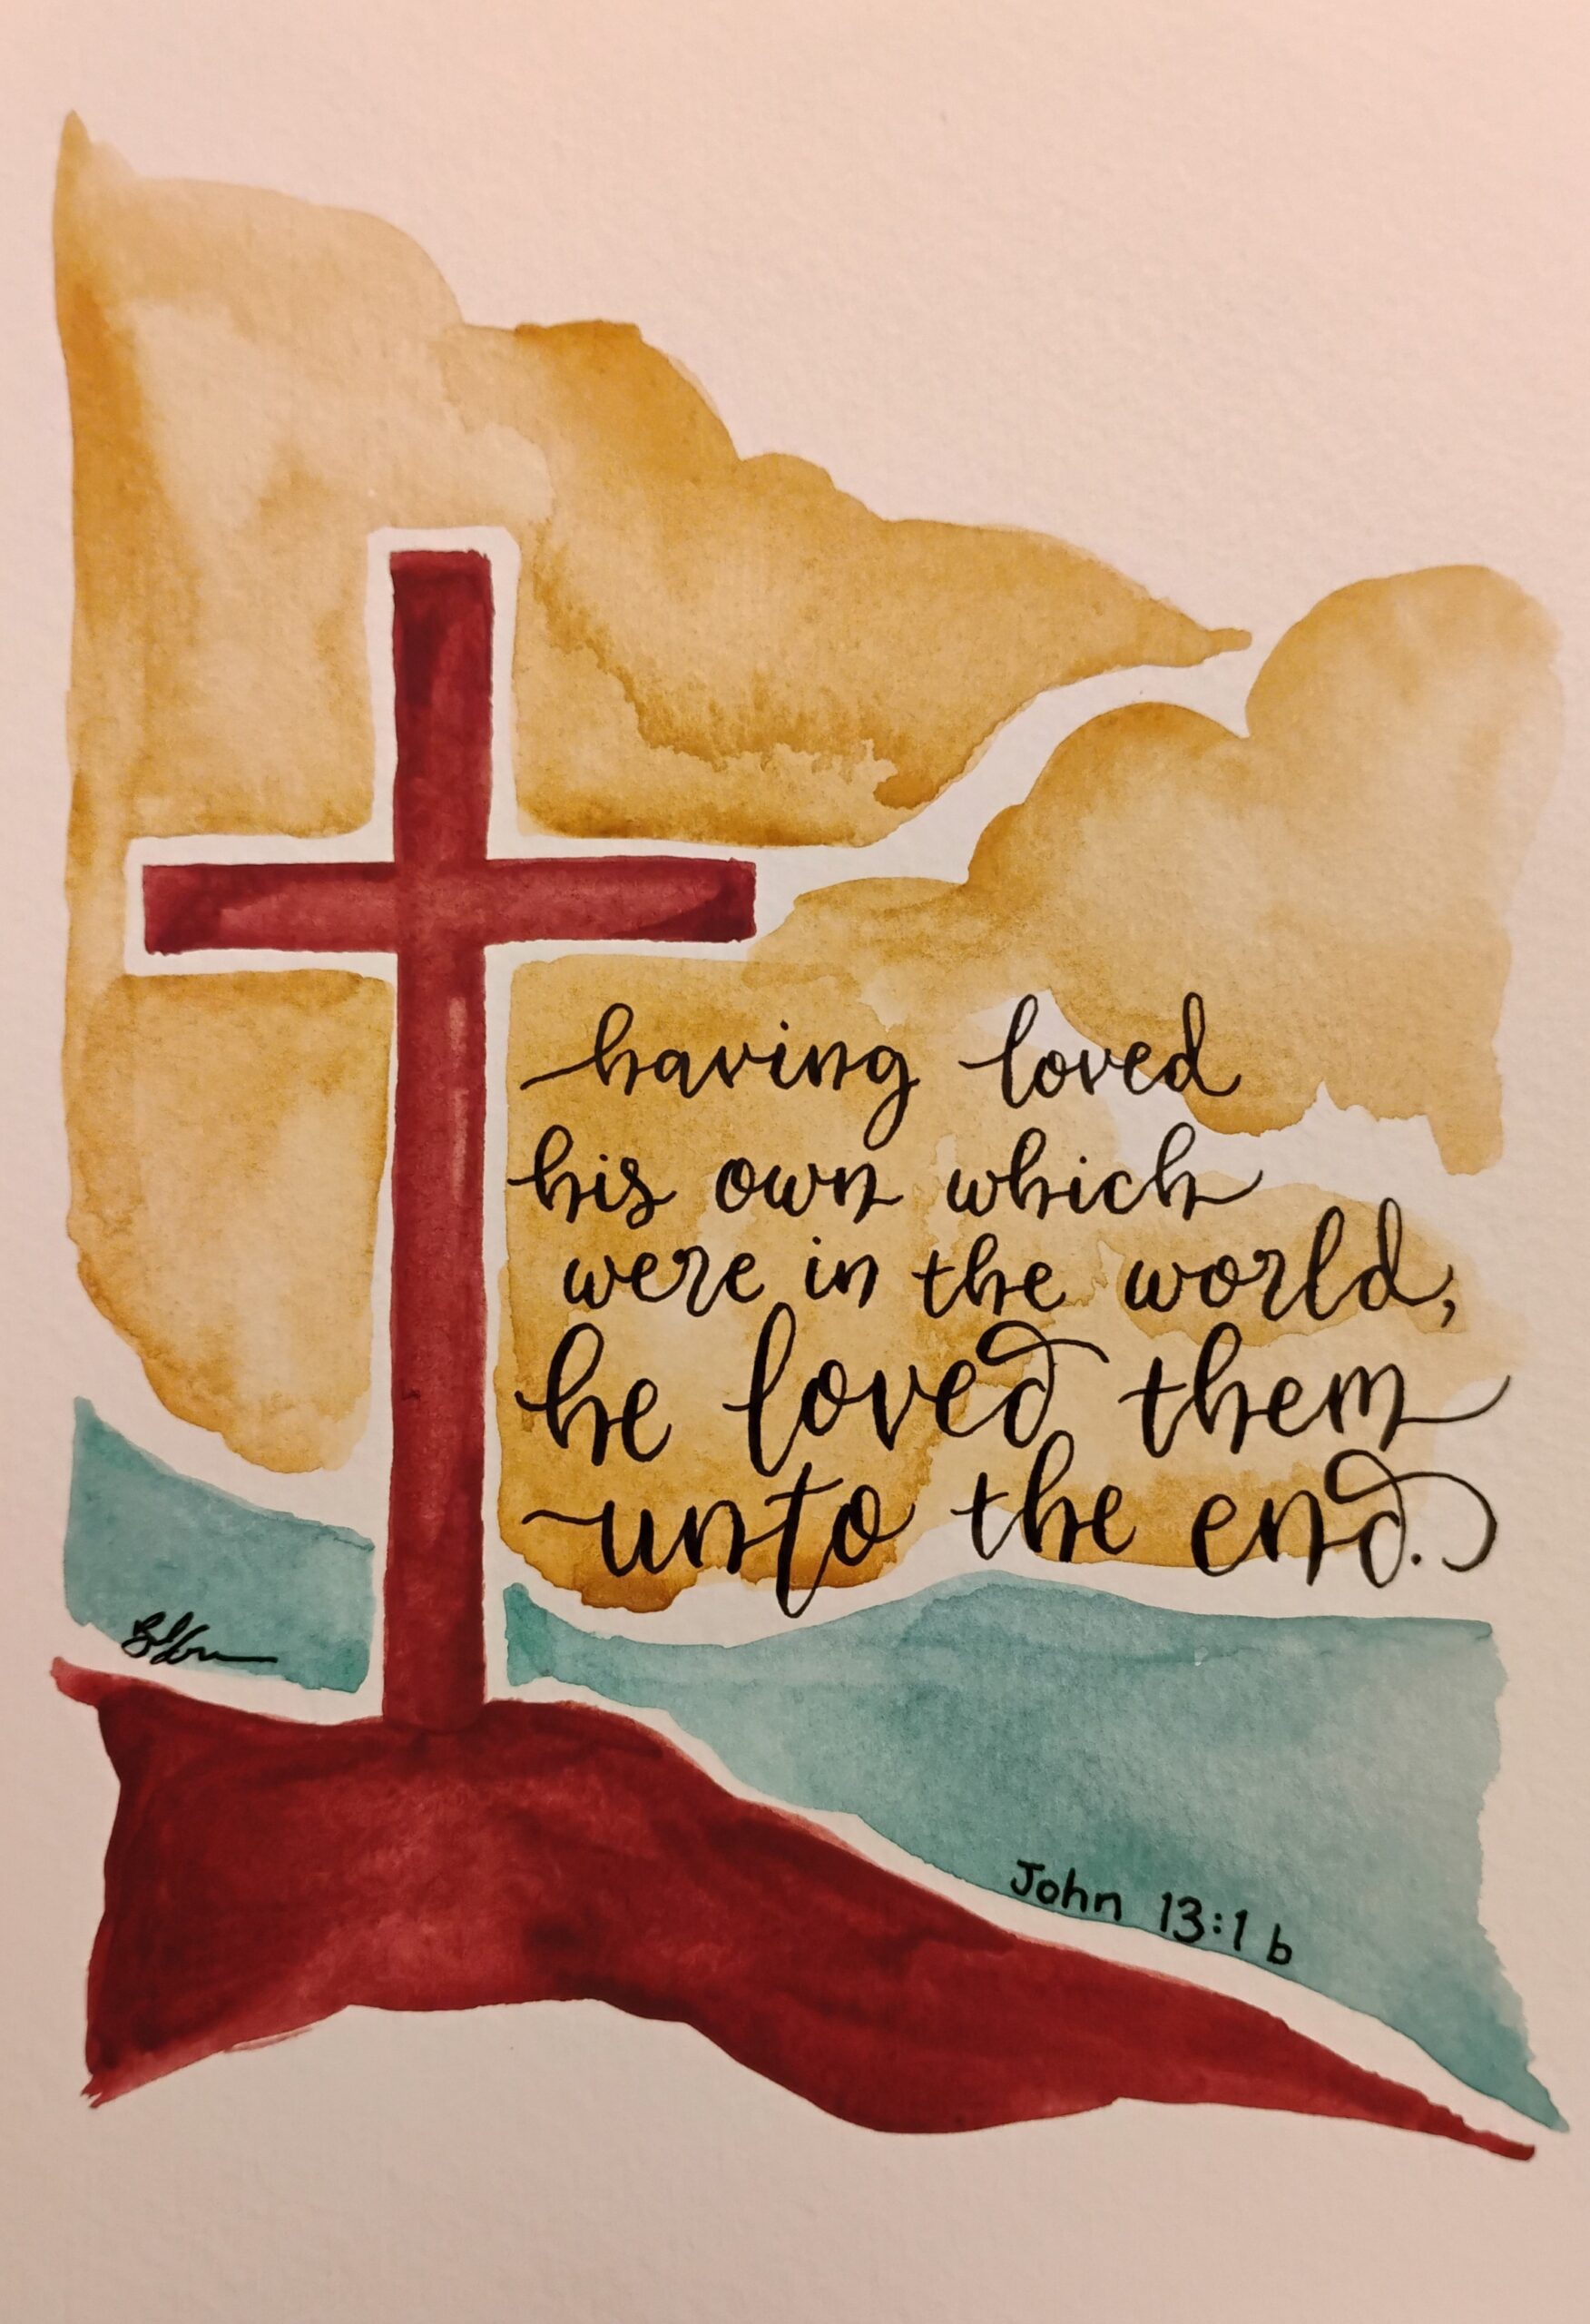 having loved
his own which
were in the world,
he loved them
unto the end.
John 13:1 b